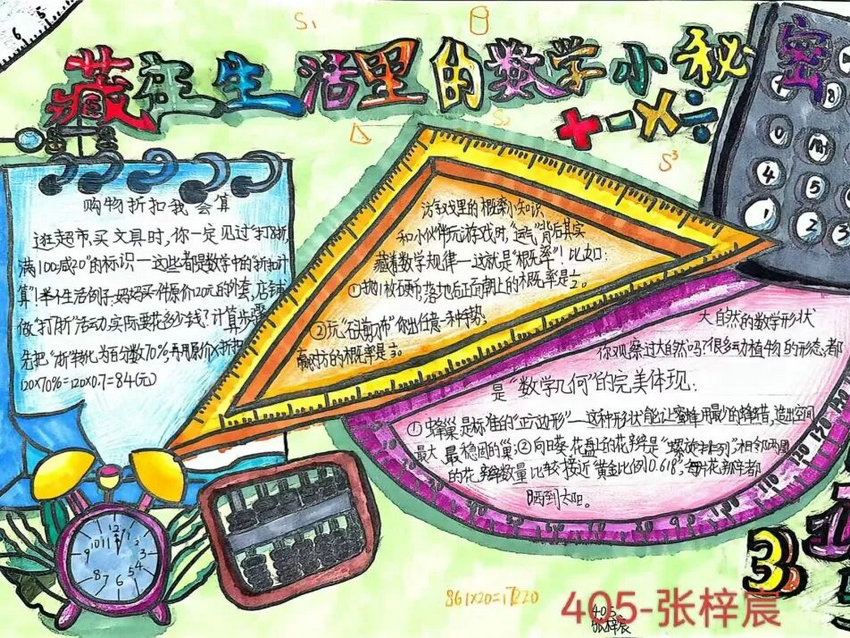 藏在生活里的数学小秘密
+-×÷
购物折扣我会算
逛超市,买文具时,你一定见过"打8折,
满100减20"的标识一这些都是数学中的"折扣计
算"!举个生活例子:妈妈买一件原价120元的外套,店铺
做"打7折"活动,实际要花多少钱?计算步骤:
先把"7折"转化为百分数70%,再用原价×折扣
120×70%=120×0.7=84(元)
游戏里的概率小知识
和小伙伴玩游戏时,"运气"背后其实
藏着数学规律一这就是"概率"!比如:
②玩"石头剪刀布"你出任意一种手势,
赢对方的概率是⅓。
大自然的数学形状
你观察过大自然吗?很多动植物的形态,都
是"数学几何"的完美体现:
①蜂巢是标准的"正六边形"一这种形状能让蜜蜂用最少的蜂蜡,造出空间
最大、最稳固的巢;②向日葵花盘上的花瓣是"螺旋排列"相邻两圈
的花瓣数量比较接近"黄金比例0.618",每片花瓣都
晒到太阳。
861×20=17220
405-张梓宸
405
张梓宸